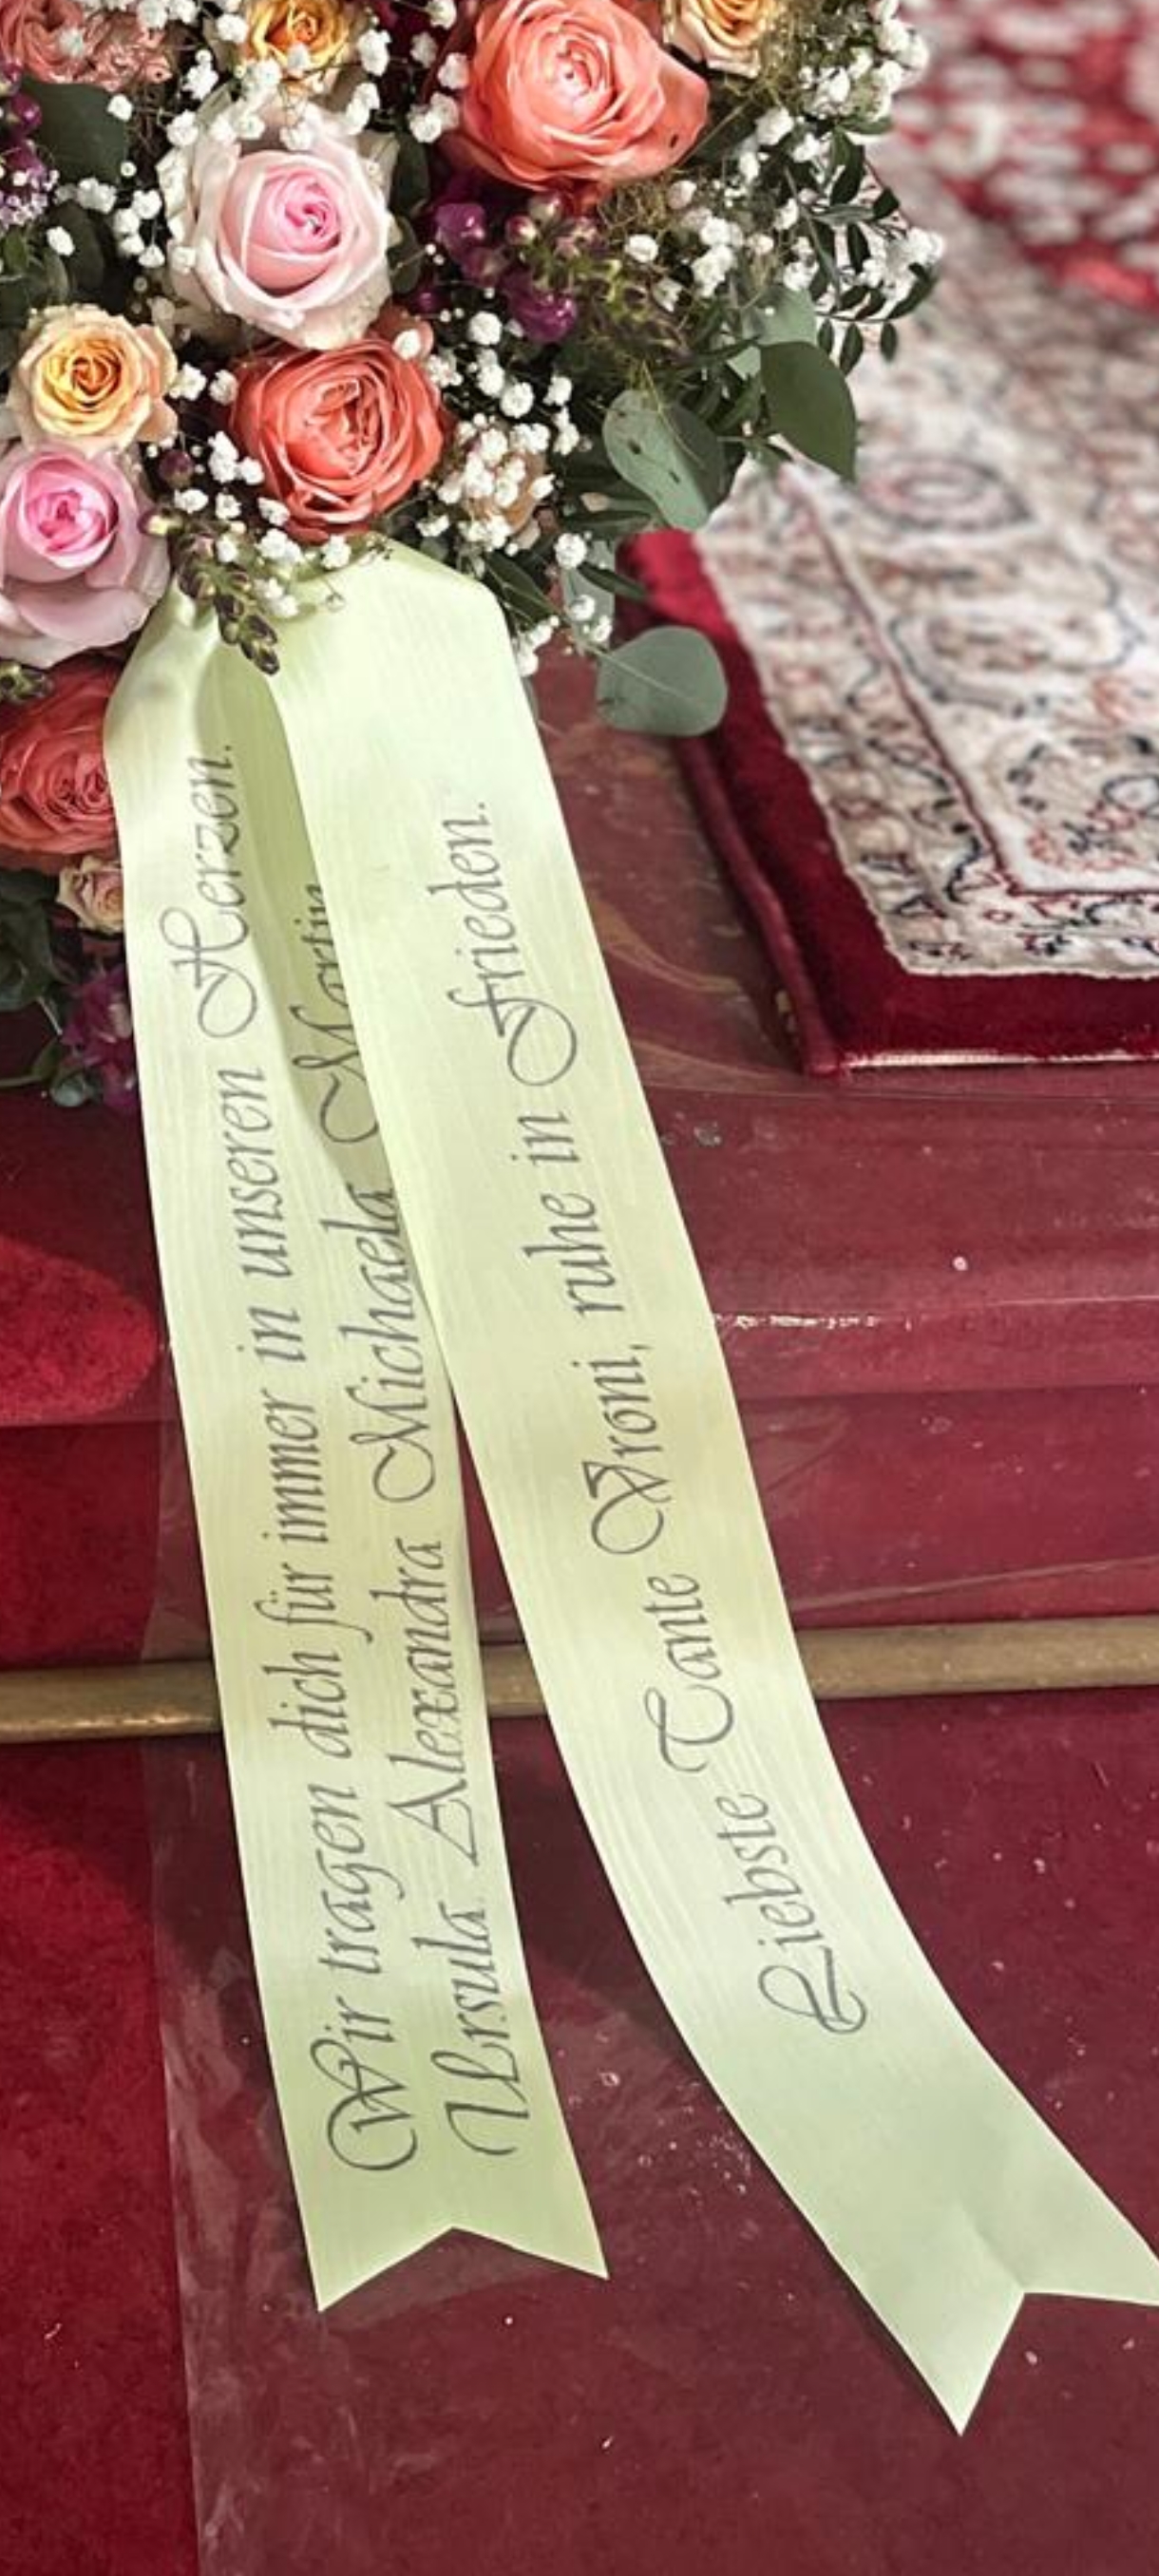 Wir tragen dich für immer in unseren Herzen.
Ursula Alexandra Michaela Martin
Liebste Tante Vroni, ruhe in Frieden.